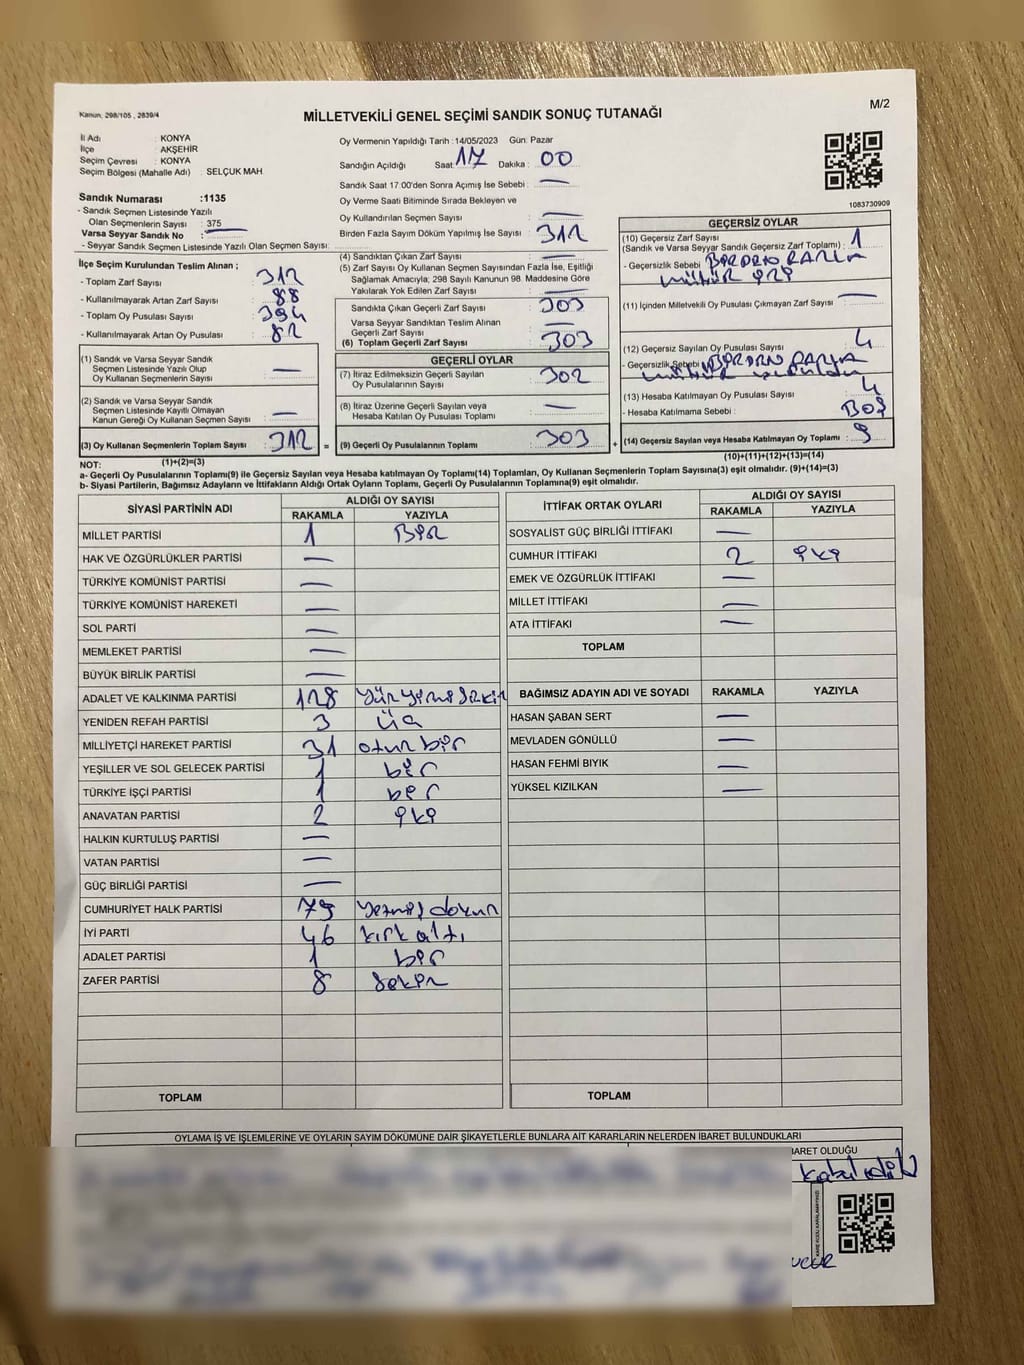 Kanun, 298/105 , 2839/4
MİLLETVEKİLİ GENEL SEÇİMİ SANDIK SONUÇ TUTANAĞI
M/2
İl Adı : KONYA
İlçe : AKŞEHİR
Seçim Çevresi : KONYA
Seçim Bölgesi (Mahalle Adı) : SELÇUK MAH
Sandık Numarası :1135
- Sandık Seçmen Listesinde Yazılı
Olan Seçmenlerin Sayısı : 375
Varsa Seyyar Sandık No : —
- Seyyar Sandık Seçmen Listesinde Yazılı Olan Seçmen Sayısı:
Oy Vermenin Yapıldığı Tarih : 14/05/2023 Gün: Pazar
Sandığın Açıldığı Saat 17 Dakika : 00
Sandık Saat 17.00'den Sonra Açımış İse Sebebi : —
Oy Verme Saati Bitiminde Sırada Bekleyen ve
Oy Kullandırılan Seçmen Sayısı : —
Birden Fazla Sayım Döküm Yapılmış İse Sayısı : 312
1083730909
İlçe Seçim Kurulundan Teslim Alınan ;
- Toplam Zarf Sayısı : 312
- Kullanılmayarak Artan Zarf Sayısı : 88
- Toplam Oy Pusulası Sayısı : 394
- Kullanılmayarak Artan Oy Pusulası : 82
(1) Sandık ve Varsa Seyyar Sandık
Seçmen Listesinde Yazılı Olup
Oy Kullanan Seçmenlerin Sayısı : —
(2) Sandık ve Varsa Seyyar Sandık
Seçmen Listesinde Kayıtlı Olmayan
Kanun Gereği Oy Kullanan Seçmen Sayısı : —
(3) Oy Kullanan Seçmenlerin Toplam Sayısı : 312 =
(4) Sandıktan Çıkan Zarf Sayısı : —
(5) Zarf Sayısı Oy Kullanan Seçmen Sayısından Fazla İse, Eşitliği
Sağlamak Amacıyla; 298 Sayılı Kanunun 98. Maddesine Göre
Yakılarak Yok Edilen Zarf Sayısı : —
Sandıkta Çıkan Geçerli Zarf Sayısı : 303
Varsa Seyyar Sandıktan Teslim Alınan
Geçerli Zarf Sayısı : —
(6) Toplam Geçerli Zarf Sayısı : 303
GEÇERLİ OYLAR
(7) İtiraz Edilmeksizin Geçerli Sayılan
Oy Pusulalarının Sayısı : 302
(8) İtiraz Üzerine Geçerli Sayılan veya
Hesaba Katılan Oy Pusulası Toplamı : —
(9) Geçerli Oy Pusulalarının Toplamı : 303 +
GEÇERSİZ OYLAR
(10) Geçersiz Zarf Sayısı
(Sandık ve Varsa Seyyar Sandık Geçersiz Zarf Toplamı) : 1
- Geçersizlik Sebebi :
(11) İçinden Milletvekili Oy Pusulası Çıkmayan Zarf Sayısı : —
(12) Geçersiz Sayılan Oy Pusulası Sayısı : 4
- Geçersizlik Sebebi :
(13) Hesaba Katılmayan Oy Pusulası Sayısı : 4
- Hesaba Katılmama Sebebi : BOŞ
(14) Geçersiz Sayılan veya Hesaba Katılmayan Oy Toplamı : 9
NOT: (1)+(2)=(3)
(10)+(11)+(12)+(13)=(14)
a- Geçerli Oy Pusulalarının Toplamı(9) ile Geçersiz Sayılan veya Hesaba katılmayan Oy Toplamı(14) Toplamları, Oy Kullanan Seçmenlerin Toplam Sayısına(3) eşit olmalıdır. (9)+(14)=(3)
b- Siyasi Partilerin, Bağımsız Adayların ve İttifakların Aldığı Ortak Oyların Toplamı, Geçerli Oy Pusulalarının Toplamına(9) eşit olmalıdır.
SİYASİ PARTİNİN ADI
ALDIĞI OY SAYISI
RAKAMLA YAZIYLA
MİLLET PARTİSİ 1 Bir
HAK VE ÖZGÜRLÜKLER PARTİSİ —
TÜRKİYE KOMÜNİST PARTİSİ —
TÜRKİYE KOMÜNİST HAREKETİ —
SOL PARTİ —
MEMLEKET PARTİSİ —
BÜYÜK BİRLİK PARTİSİ —
ADALET VE KALKINMA PARTİSİ 128
YENİDEN REFAH PARTİSİ 3 üç
MİLLİYETÇİ HAREKET PARTİSİ 31 otuz bir
YEŞİLLER VE SOL GELECEK PARTİSİ 1 bir
TÜRKİYE İŞÇİ PARTİSİ 1 bir
ANAVATAN PARTİSİ 2 iki
HALKIN KURTULUŞ PARTİSİ —
VATAN PARTİSİ —
GÜÇ BİRLİĞİ PARTİSİ —
CUMHURİYET HALK PARTİSİ 79 yetmiş dokuz
İYİ PARTİ 46 kırk altı
ADALET PARTİSİ 1 bir
ZAFER PARTİSİ 8 sekiz
TOPLAM
İTTİFAK ORTAK OYLARI
ALDIĞI OY SAYISI
RAKAMLA YAZIYLA
SOSYALİST GÜÇ BİRLİĞİ İTTİFAKI —
CUMHUR İTTİFAKI 2 iki
EMEK VE ÖZGÜRLÜK İTTİFAKI —
MİLLET İTTİFAKI —
ATA İTTİFAKI —
TOPLAM
BAĞIMSIZ ADAYIN ADI VE SOYADI RAKAMLA YAZIYLA
HASAN ŞABAN SERT —
MEVLADEN GÖNÜLLÜ —
HASAN FEHMİ BIYIK —
YÜKSEL KIZILKAN —
TOPLAM
OYLAMA İŞ VE İŞLEMLERİNE VE OYLARIN SAYIM DÖKÜMÜNE DAİR ŞİKAYETLERLE BUNLARA AİT KARARLARIN NELERDEN İBARET BULUNDUKLARI
BARET OLDUĞU